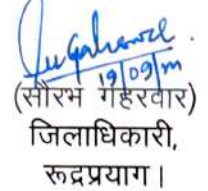 19/09/m
(सौरभ गहरवार)
जिलाधिकारी,
रूद्रप्रयाग।